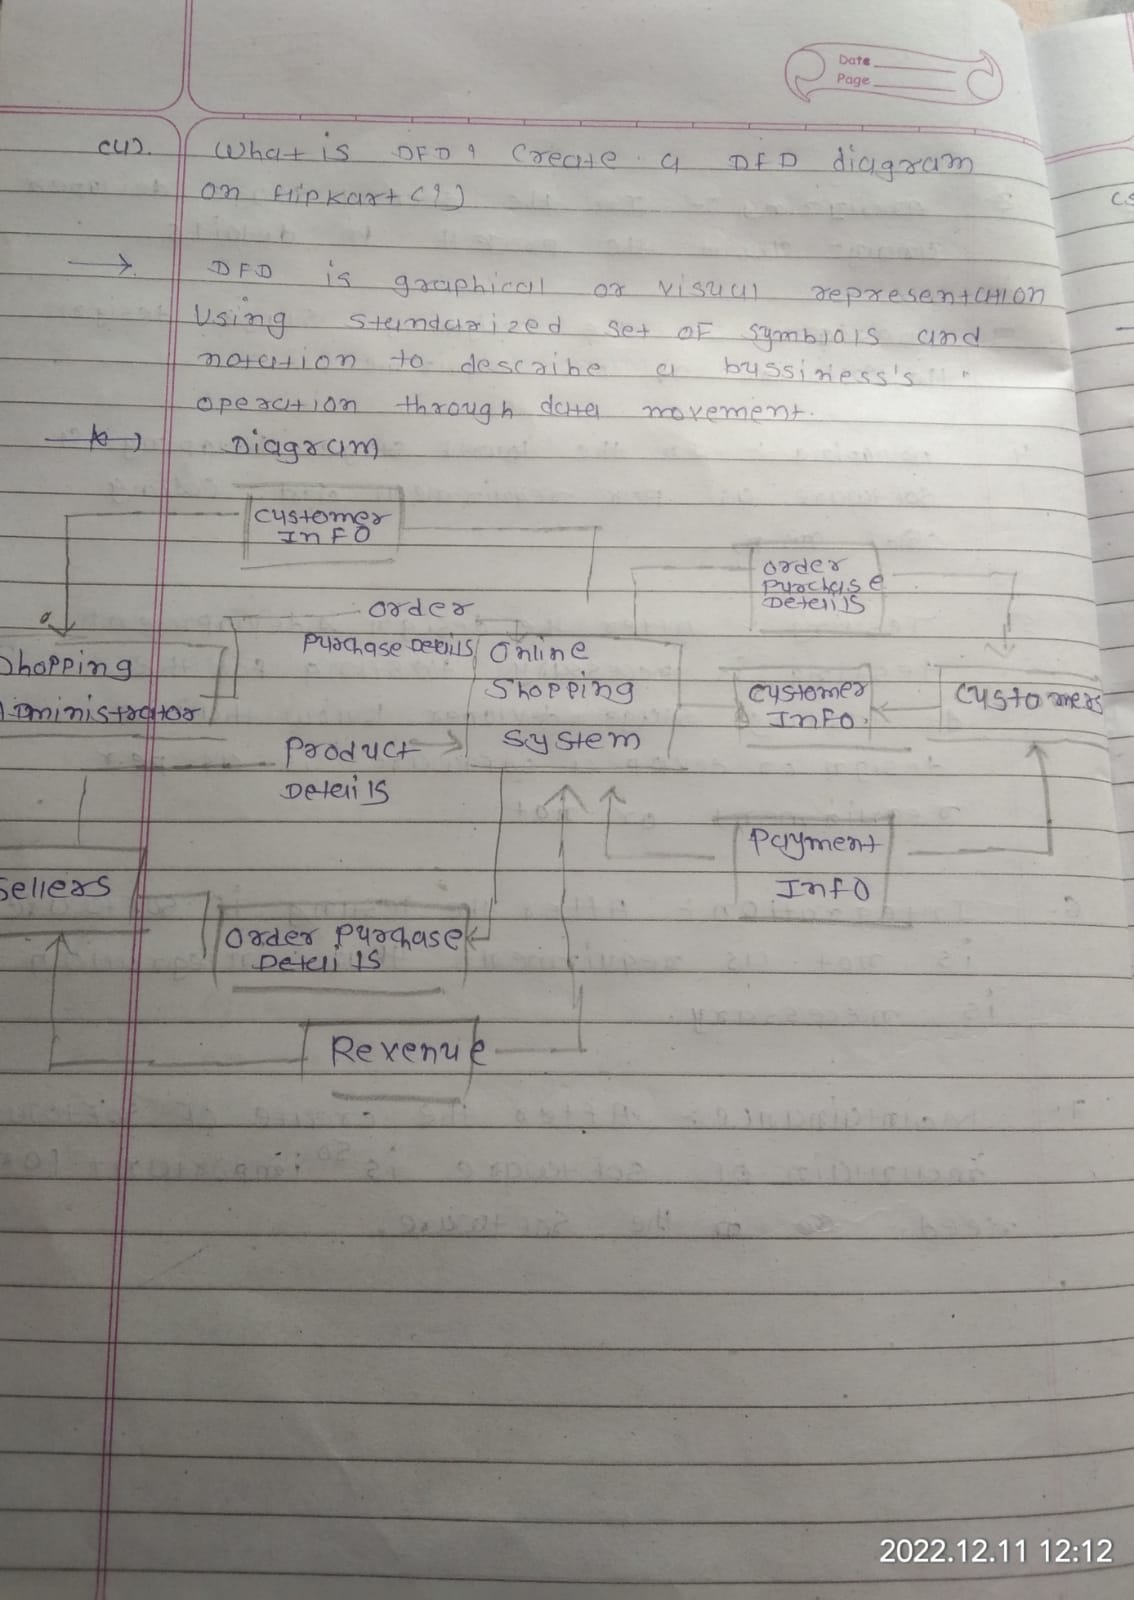 Date
Page
(4).
What is DFD? Create a DFD diagram
on flipkart(?)
DFD is graphical or visual representation
Using standarized set of symblols and
notation to describe a bussiness's
operation through data movement.
Diagram
Customer
Info
Order
Purchase
Details
Order
Purchase Details
Online
Shopping
System
Shopping
Administrator
Customer
Info.
Customers
Product
Details
Payment
Info
Sellers
Order Purchase
Details
Revenue
2022.12.11 12:12